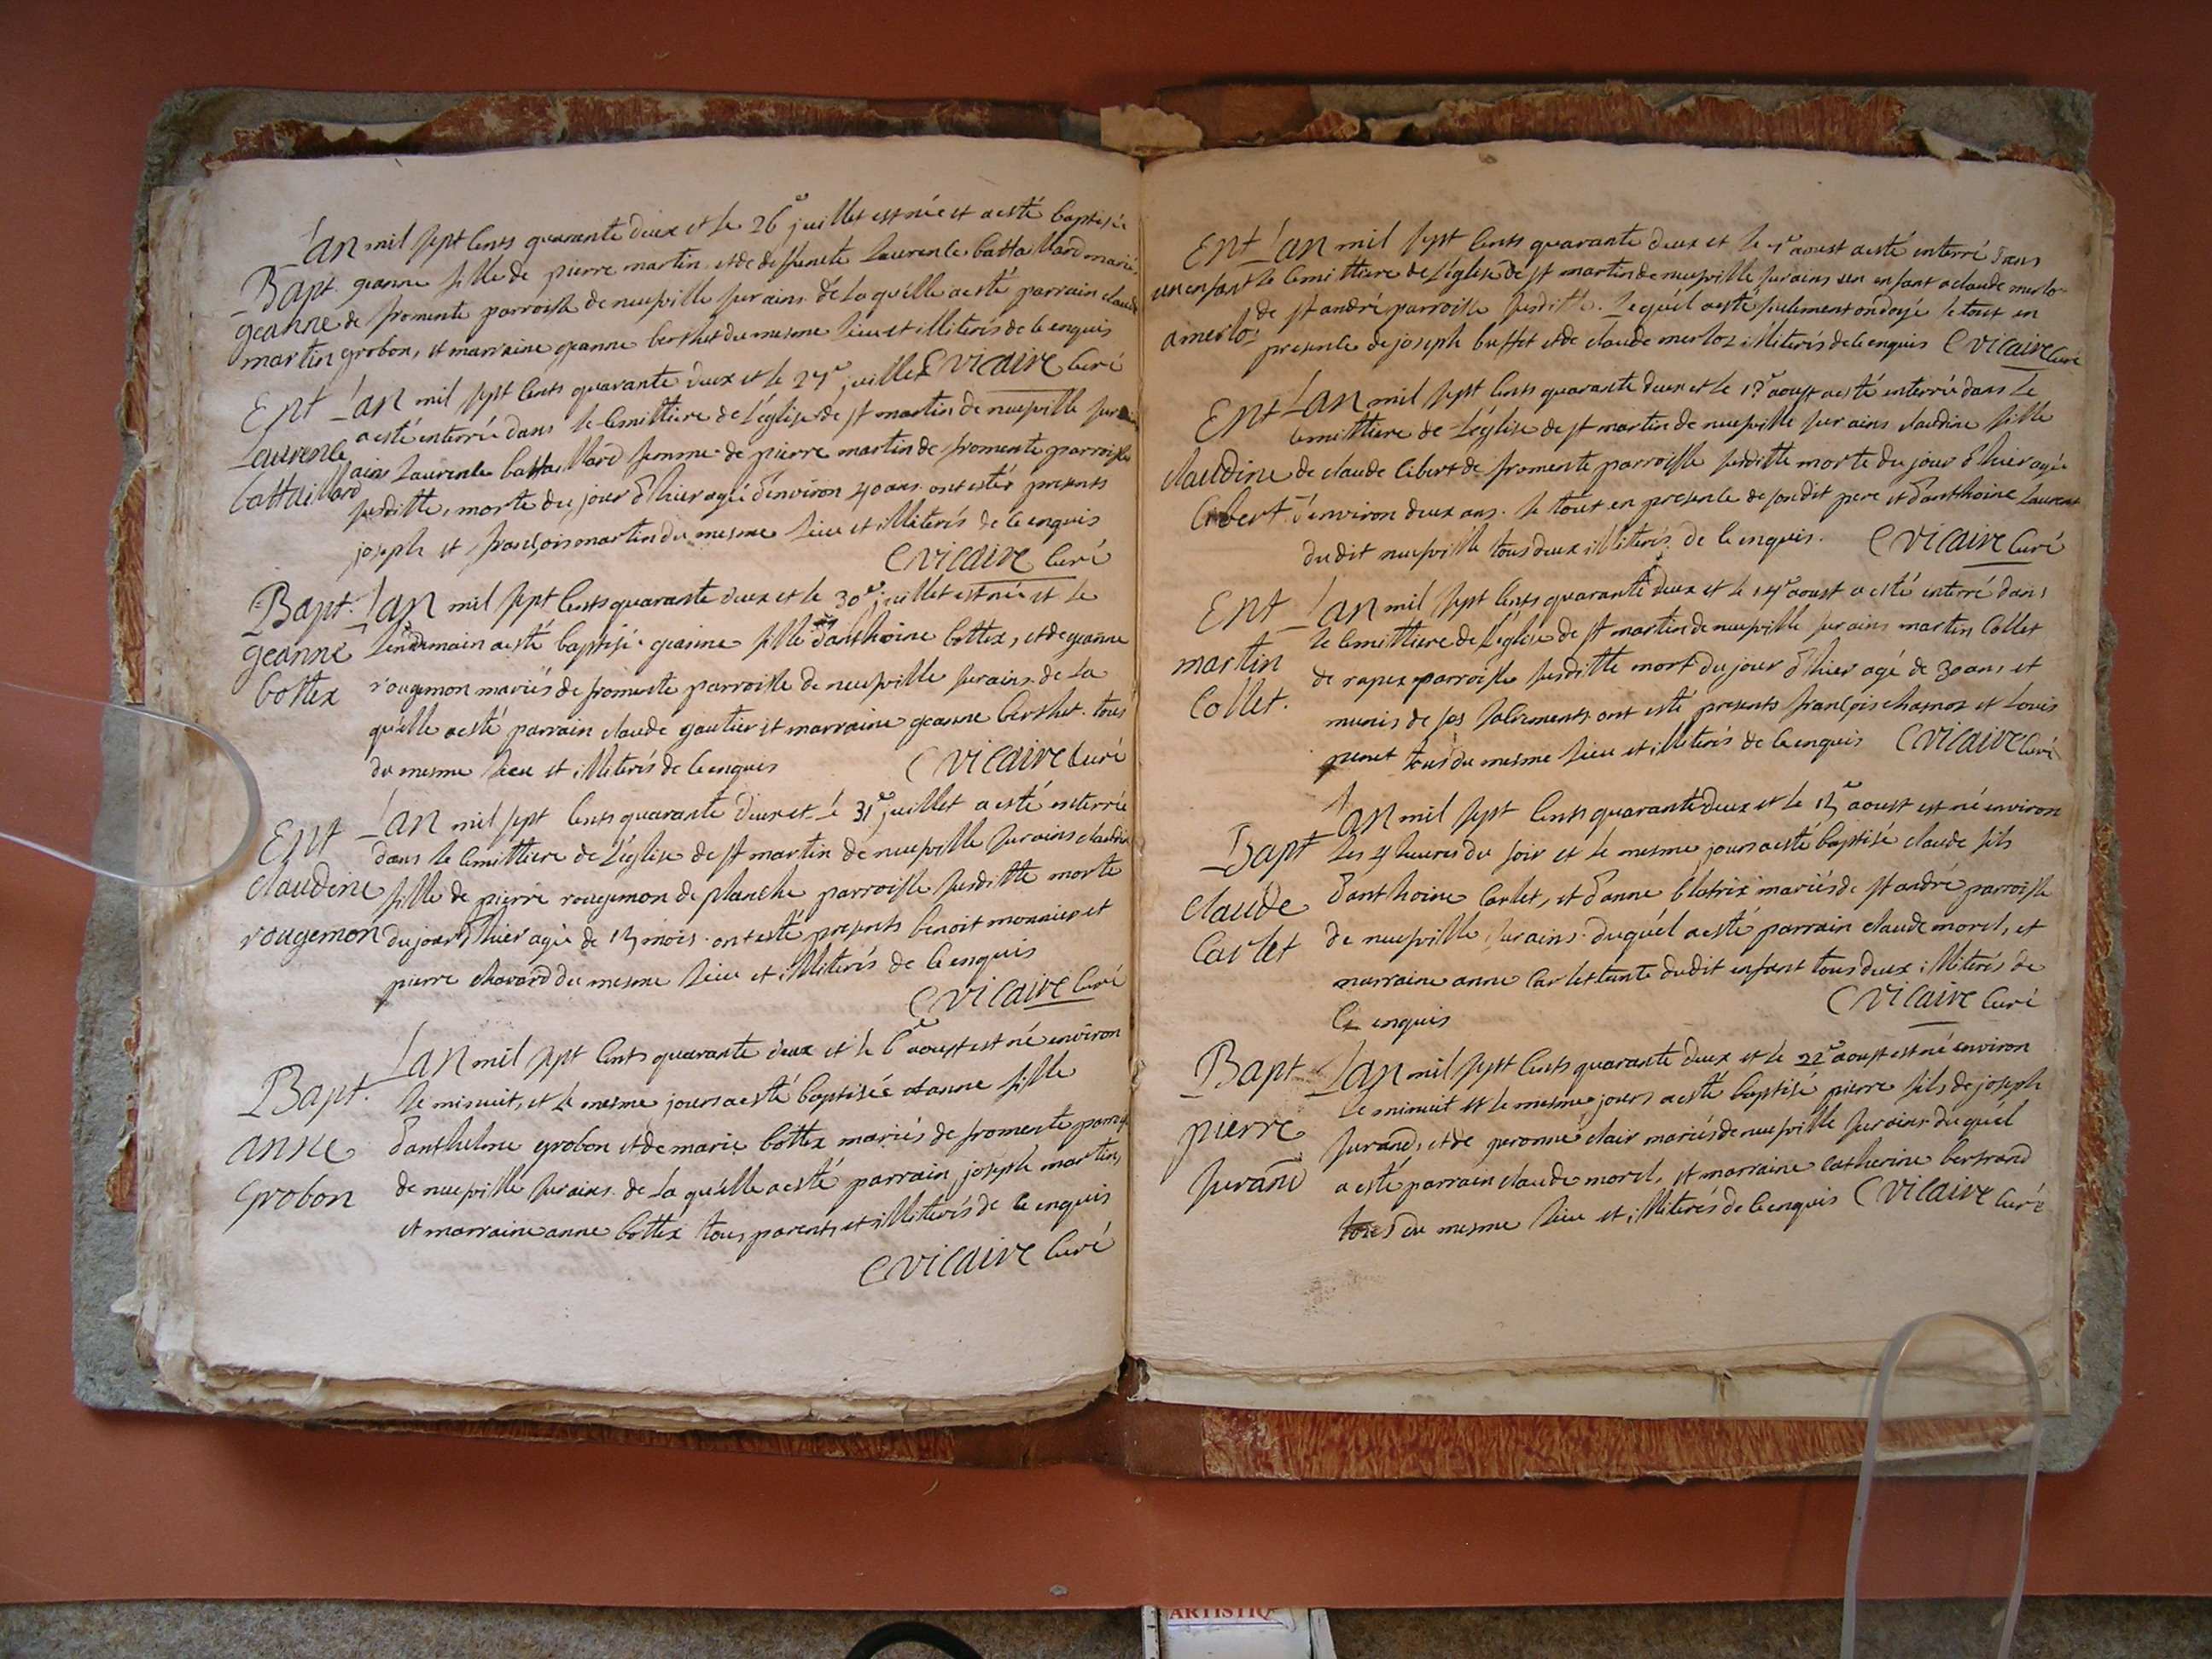 Bapt.
geanne
martin
L'an mil sept cents quarante deux et le 26e juillet est née et a esté baptisée
geanne fille de pierre martin et de deffuncte Laurence battaillard mariés
de fromente parroisse de neufville sur ains de la quélle a esté parrain claude
grobon, et marraine geanne berthet du mesme lieu et illiterés de ce enquis
C vicaire curé
Ent
Laurence
battaillard
L'an mil sept cents quarante deux et le 27e juillet
a esté enterrée dans le cemittiere de l'église de st martin de neufville sur
ains Laurence battaillard femme de pierre martin de fromente parroisse
susditte, morte du jour d'hier agée d'environ 40 ans. ont estés presents
joseph et françois martin du mesme lieu et illiterés de ce enquis
C vicaire curé
Bapt.
geanne
bottex
L'an mil sept cents quarante deux et le 30e juillet est née et le
lendemain a esté baptisée geanne fille d'anthoine bottex, et de geanne
rougemon mariés de fromente parroisse de neufville sur ains. de la
quélle a esté parrain claude gautier et marraine geanne berthet. tous
du mesme lieu et illiterés de ce enquis
C vicaire curé
Ent
claudine
rougemon
L'an mil sept cents quarante deux et le 31e juillet a esté enterrée
dans le cemittiere de l'église de st martin de neufville sur ains claudine
fille de pierre rougemon de planche parroisse susditte morte
du jour d'hier agée de 13 mois. ont esté presents benoit monnier et
pierre chavard du mesme lieu et illiterés de ce enquis
C vicaire curé
Bapt.
anne
grobon
L'an mil sept cents quarante deux et le 6e aoust est né environ
le minuit, et le mesme jours a esté baptisée anne fille
d'anthelme grobon et de marie bottex mariés de fromente parroisse
de neufville sur ains. de la quélle a esté parrain joseph martin,
et marraine anne bottex tous parents et illiterés de ce enquis
C vicaire curé
Ent
un enfant
a merlo
L'an mil sept cents quarante deux et le 7e aoust a esté enterré dans
le cemittiere de l'église de st martin de neufville sur ains un enfant a claude merlo
de st andré parroisse susditte. Lequél a esté seulement ondoyé le tout en
presence de joseph buffet et de claude merloz illiterés de ce enquis C vicaire curé
Ent
claudine
Cibert
L'an mil sept cents quarante deux et le 13e aoust a esté enterrée dans le
cemittiere de l'église de st martin de neufville sur ains claudine fille
de claude Cibert de fromente parroisse susditte morte du jour d'hier agée
d'environ deux ans. le tout en presence de sondit pere et d'anthoine Laurent
du dit neufville tous deux illiterés de ce enquis. C vicaire curé
Ent
martin
Collet.
L'an mil sept cents quarante deux et le 14e aoust a esté enterré dans
le cemittiere de l'église de st martin de neufville sur ains martin Collet
de rapex parroisse susditte mort du jour d'hier agé de 30 ans et
munis de ses sacrements ont esté presents françois charnoz et Louis
penet tous du mesme lieu et illiterés de ce enquis C vicaire curé
Bapt
claude
Carlet
L'an mil sept cents quarante deux et le 13e aoust est né environ
les 4 heures du soir et le mesme jours a esté baptisé claude fils
d'anthoine Carlet, et d'anne blatrix mariés de st andré parroisse
de neufville sur ains. duquél a esté parrain claude morel, et
marraine anne Carlet tante dudit enfant tous deux illiterés de
ce enquis
C vicaire curé
Bapt
pierre
Jurand
L'an mil sept cents quarante deux et le 22e aoust est né environ
le minuit et le mesme jours a esté baptisé pierre fils de joseph
Jurand, et de peronne clair mariés de neufville sur ains. duquél
a esté parrain claude morel, et marraine catherine bertrand
tous du mesme lieu et illiterés de ce enquis C vicaire curé
ARTISTIQ